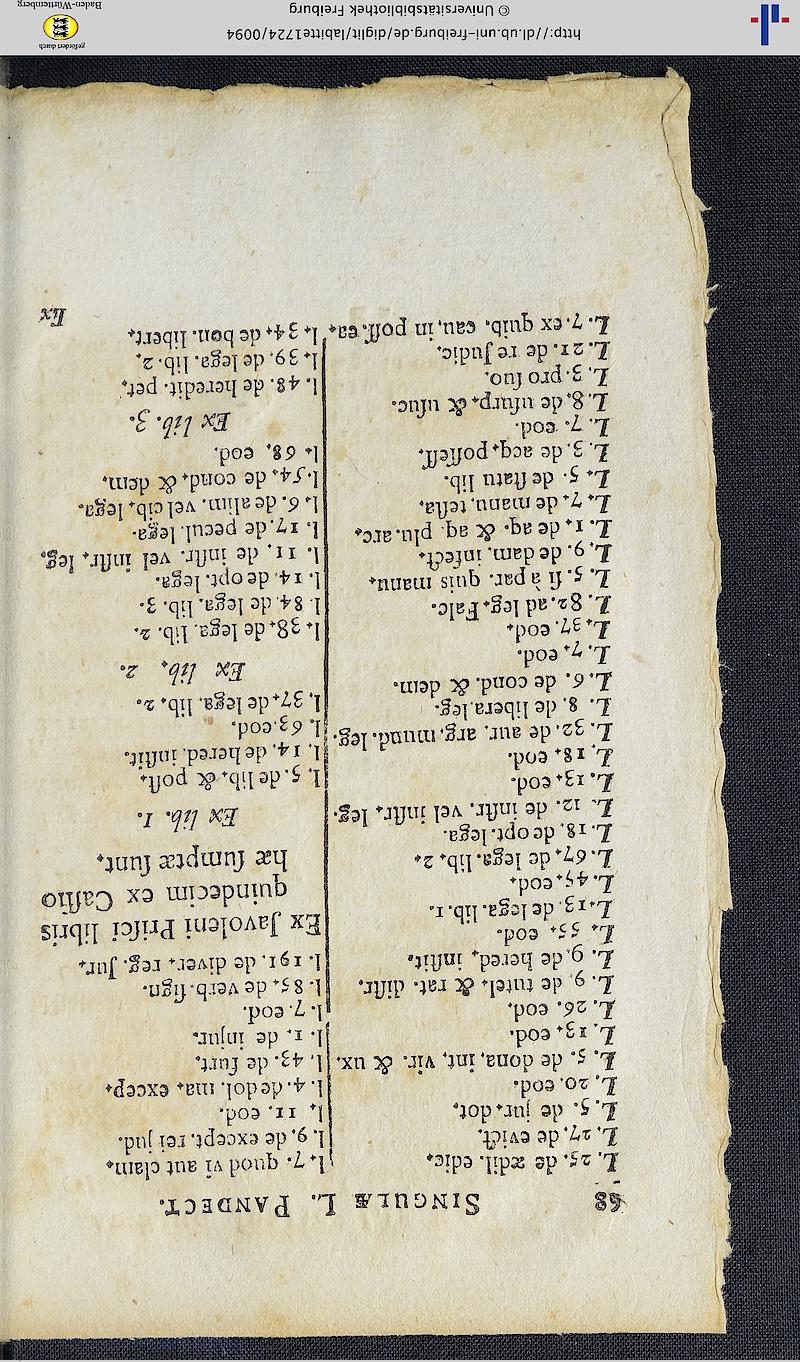 68 SINGULÆ L. PANDECT.
L. 25. de ædil. edic.
L. 27. de evict.
L. 5. de jur. dot.
L. 20. eod.
L. 5. de dona, int, vir. & ux.
L. 13. eod.
L. 26. eod.
L. 9. de tutel. & rat. diſtr.
L. 9. de hered. inſtit.
L. 55. eod.
L. 13. de lega. lib. 1.
L. 45. eod.
L. 67. de lega. lib. 2.
L. 18. de opt. lega.
L. 12. de inſtr. vel inſtr. leg.
L. 13. eod.
L. 18. eod.
L. 32. de aur. arg. mund. leg.
L. 8. de libera. leg.
L. 6. de cond. & dem.
L. 7. eod.
L. 37. eod.
L. 82. ad leg. Falc.
L. 5. ſi à par. quis manu.
L. 9. de dam. infect.
L. 1. de aq. & aq. plu. arc.
L. 7. de manu. teſta.
L. 5. de ſtatu lib.
L. 3. de acq. poſſeſſ.
L. 7. eod.
L. 8. de uſurp. & uſuc.
L. 3. pro ſuo.
L. 21. de re judic.
L. 7. ex quib. cau, in poſſ. ea.
l. 7. quod vi aut clam.
l. 9. de except. rei jud.
l. 11. eod.
l. 4. de dol. ma. excep.
l. 43. de furt.
l. 1. de injur.
l. 7. eod.
l. 85. de verb. ſign.
l. 191. de diver. reg. jur.
Ex Javoleni Priſci libris
quindecim ex Caſſio
hæ ſumptæ ſunt.
Ex lib. 1.
l. 5. de lib. & poſt.
l. 14. de hered. inſtit.
l. 63. eod.
l. 37. de lega. lib. 2.
Ex lib. 2.
l. 38. de lega. lib. 2.
l. 84. de lega. lib. 3.
l. 14. de opt. lega.
l. 11. de inſtr. vel inſtr. leg.
l. 17. de pecul. lega.
l. 6. de alim. vel cib. lega.
l. 54. de cond. & dem.
l. 68. eod.
Ex lib. 3.
l. 48. de heredit. pet.
l. 39. de lega. lib. 2.
l. 34. de bon. libert.
Ex
http://dl.ub.uni-freiburg.de/diglit/labitte1724/0094
© Universitätsbibliothek Freiburg
gefördert durch
Baden-Württemberg